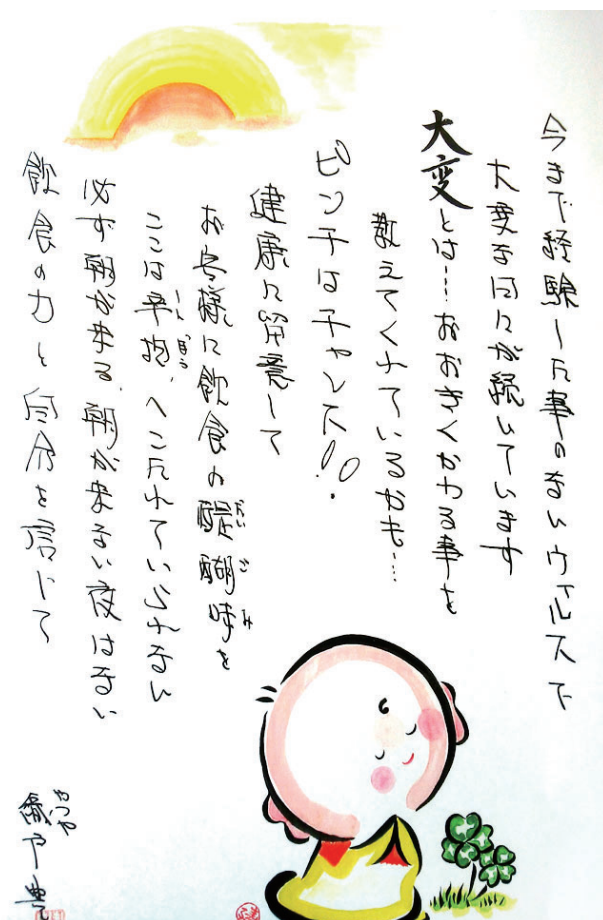 今まで経験した事のないウイルスで
大変な日々が続いています
大変とは…おおきくかわる事を
教えてくれているかも…
ピンチはチャンス!!
健康に留意して
お客様に飲食の醍醐味を
だいごみ
ここは辛抱、へこたれていられない
しんぼう
必ず朝が来る、朝が来ない夜はない
飲食の力と自分を信じて
かつや